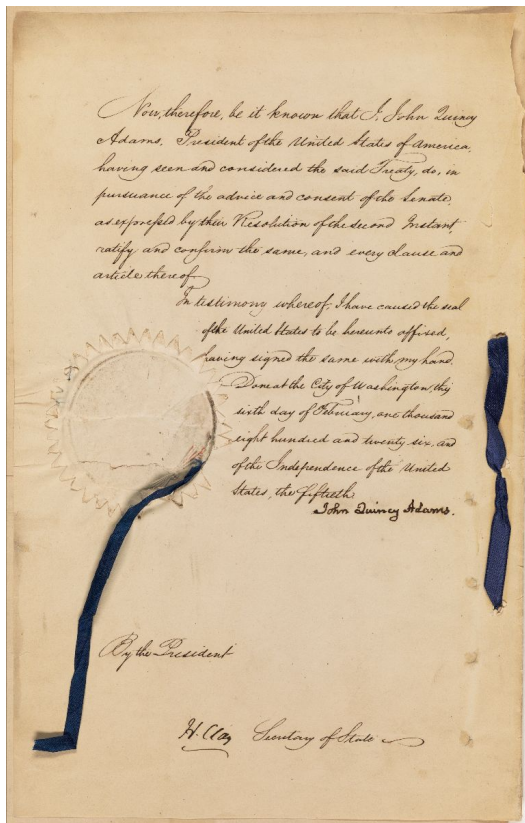 Now, therefore, be it known that I, John Quincy
Adams, President of the United States of America,
having seen and considered the said Treaty, do, in
pursuance of the advice and consent of the Senate,
as expressed by their Resolution of the second Instant,
ratify and confirm the same, and every clause and
article thereof.
In testimony whereof, I have caused the seal
of the United States to be hereunto affixed,
having signed the same with my hand.
Done at the City of Washington, this
sixth day of February, one thousand
eight hundred and twenty six, and
of the Independence of the United
States, the fiftieth.
John Quincy Adams.
By the President
H. Clay Secretary of State